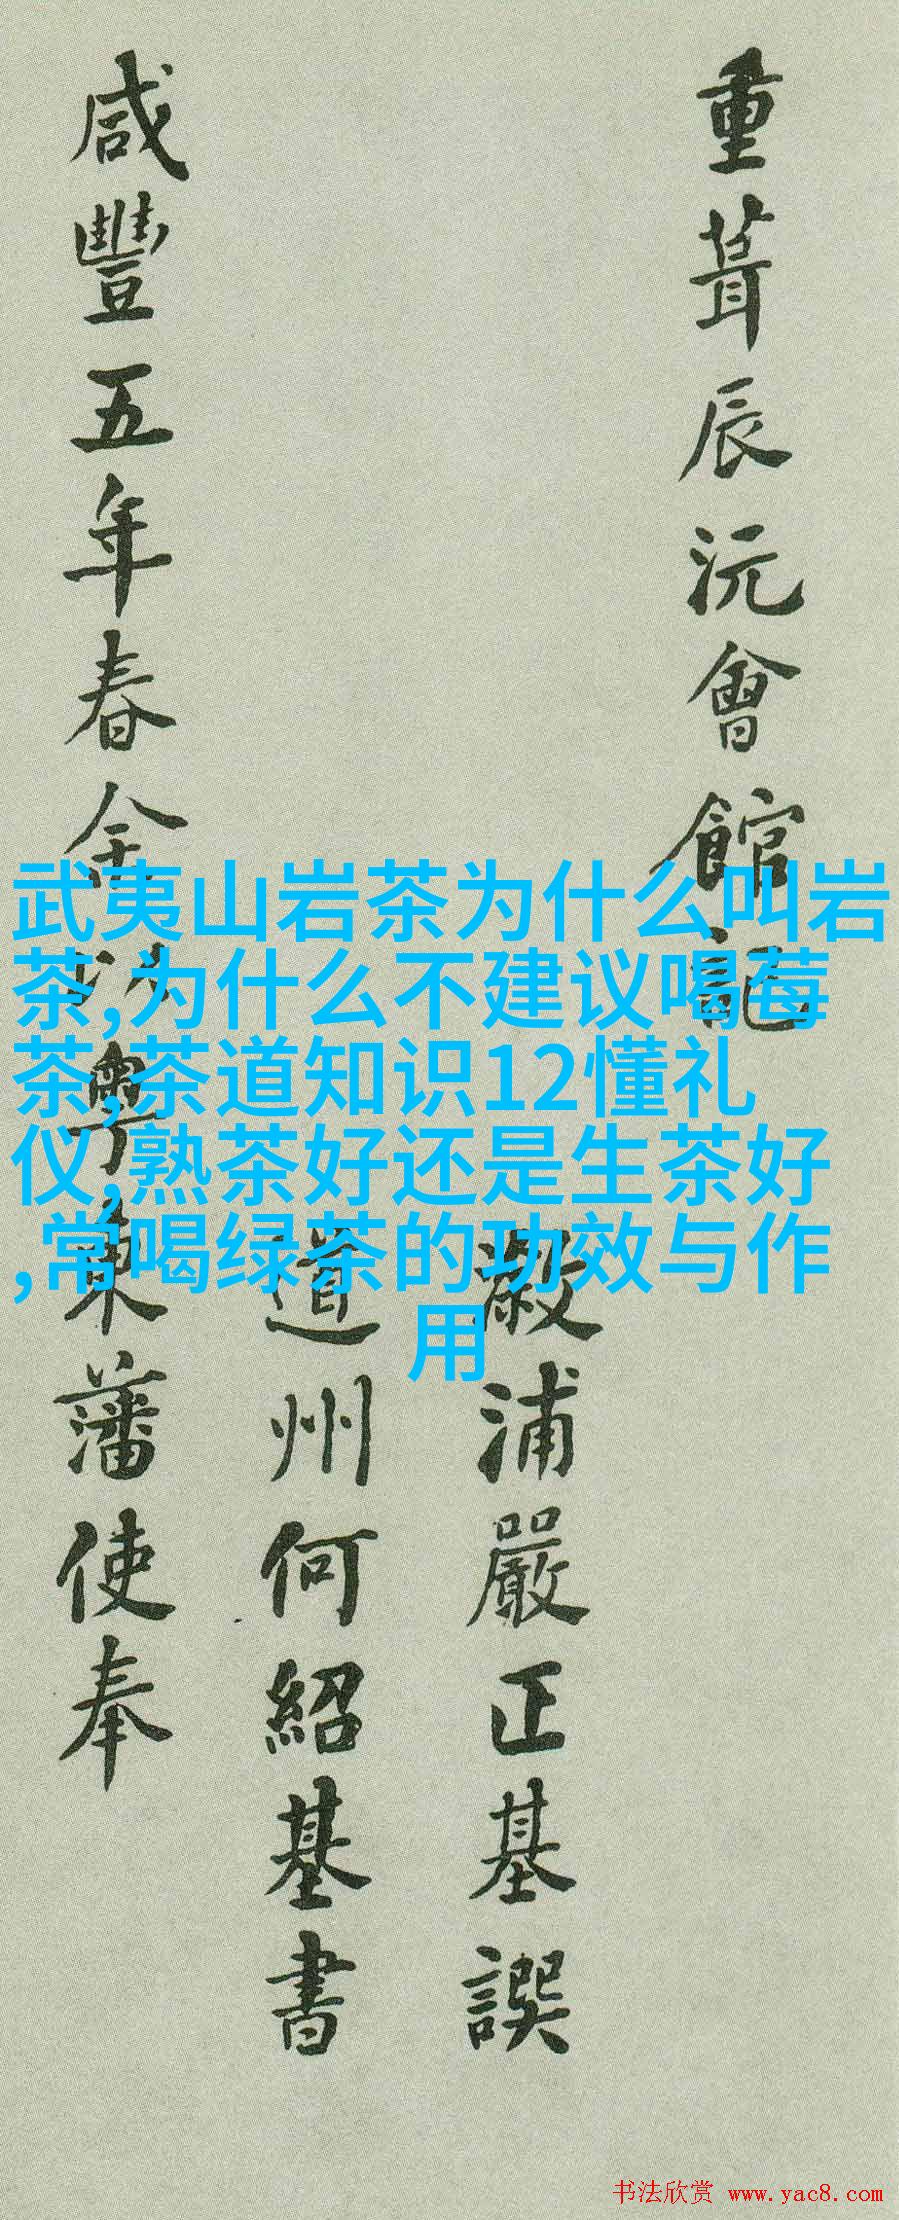 重葺辰沅會館記
漵浦嚴正基譔
道州何紹基書
咸豐五年春余以粵東藩使奉
武夷山岩茶为什么叫岩
茶,为什么不建议喝莓
茶,茶道知识12懂礼
仪,熟茶好还是生茶好
,常喝绿茶的功效与作
用
书法欣赏 www.yac8.com